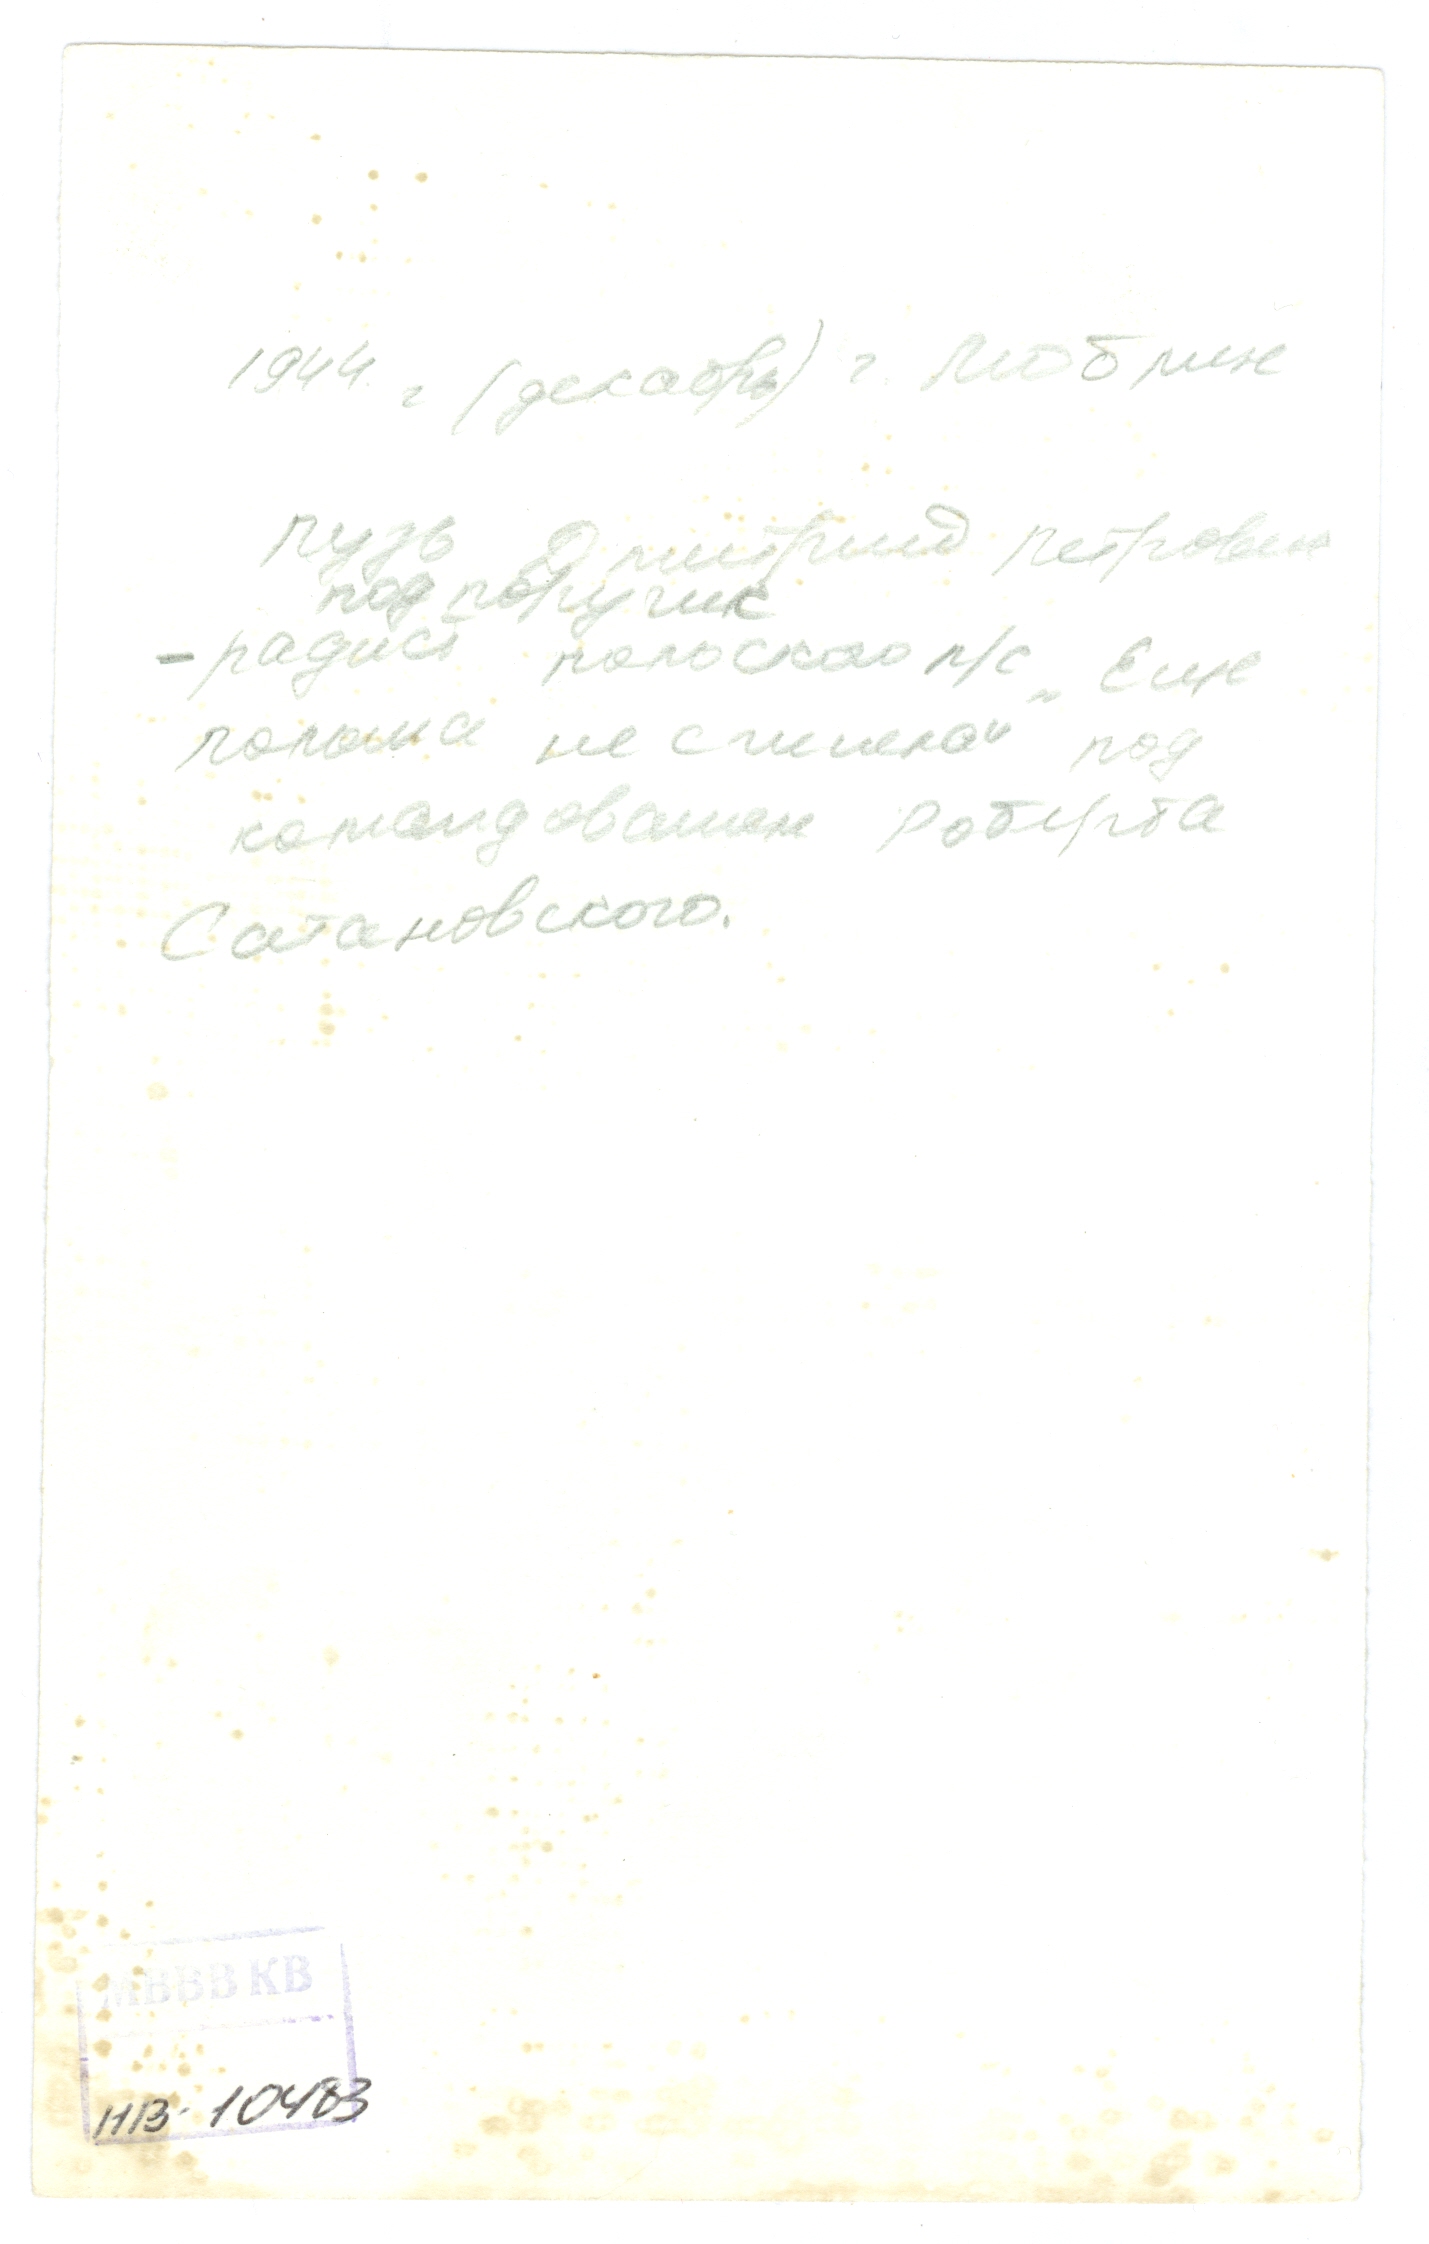 1944 г. (декабрь) г. Люблин
Пузь Дмитрий Петрович
подпоручик
- радист польского п/с „Еще
Польша не сгинела" под
командованием Роберта
Сатановского.
МВВВ КВ
НВ-10483